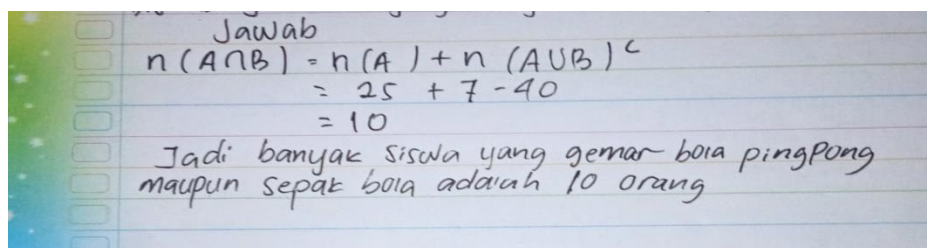 Jawab
n (A∩B) = n (A) + n (A∪B)ᶜ
= 25 + 7 - 40
= 10
Jadi banyak siswa yang gemar bola pingpong
maupun sepak bola adalah 10 orang